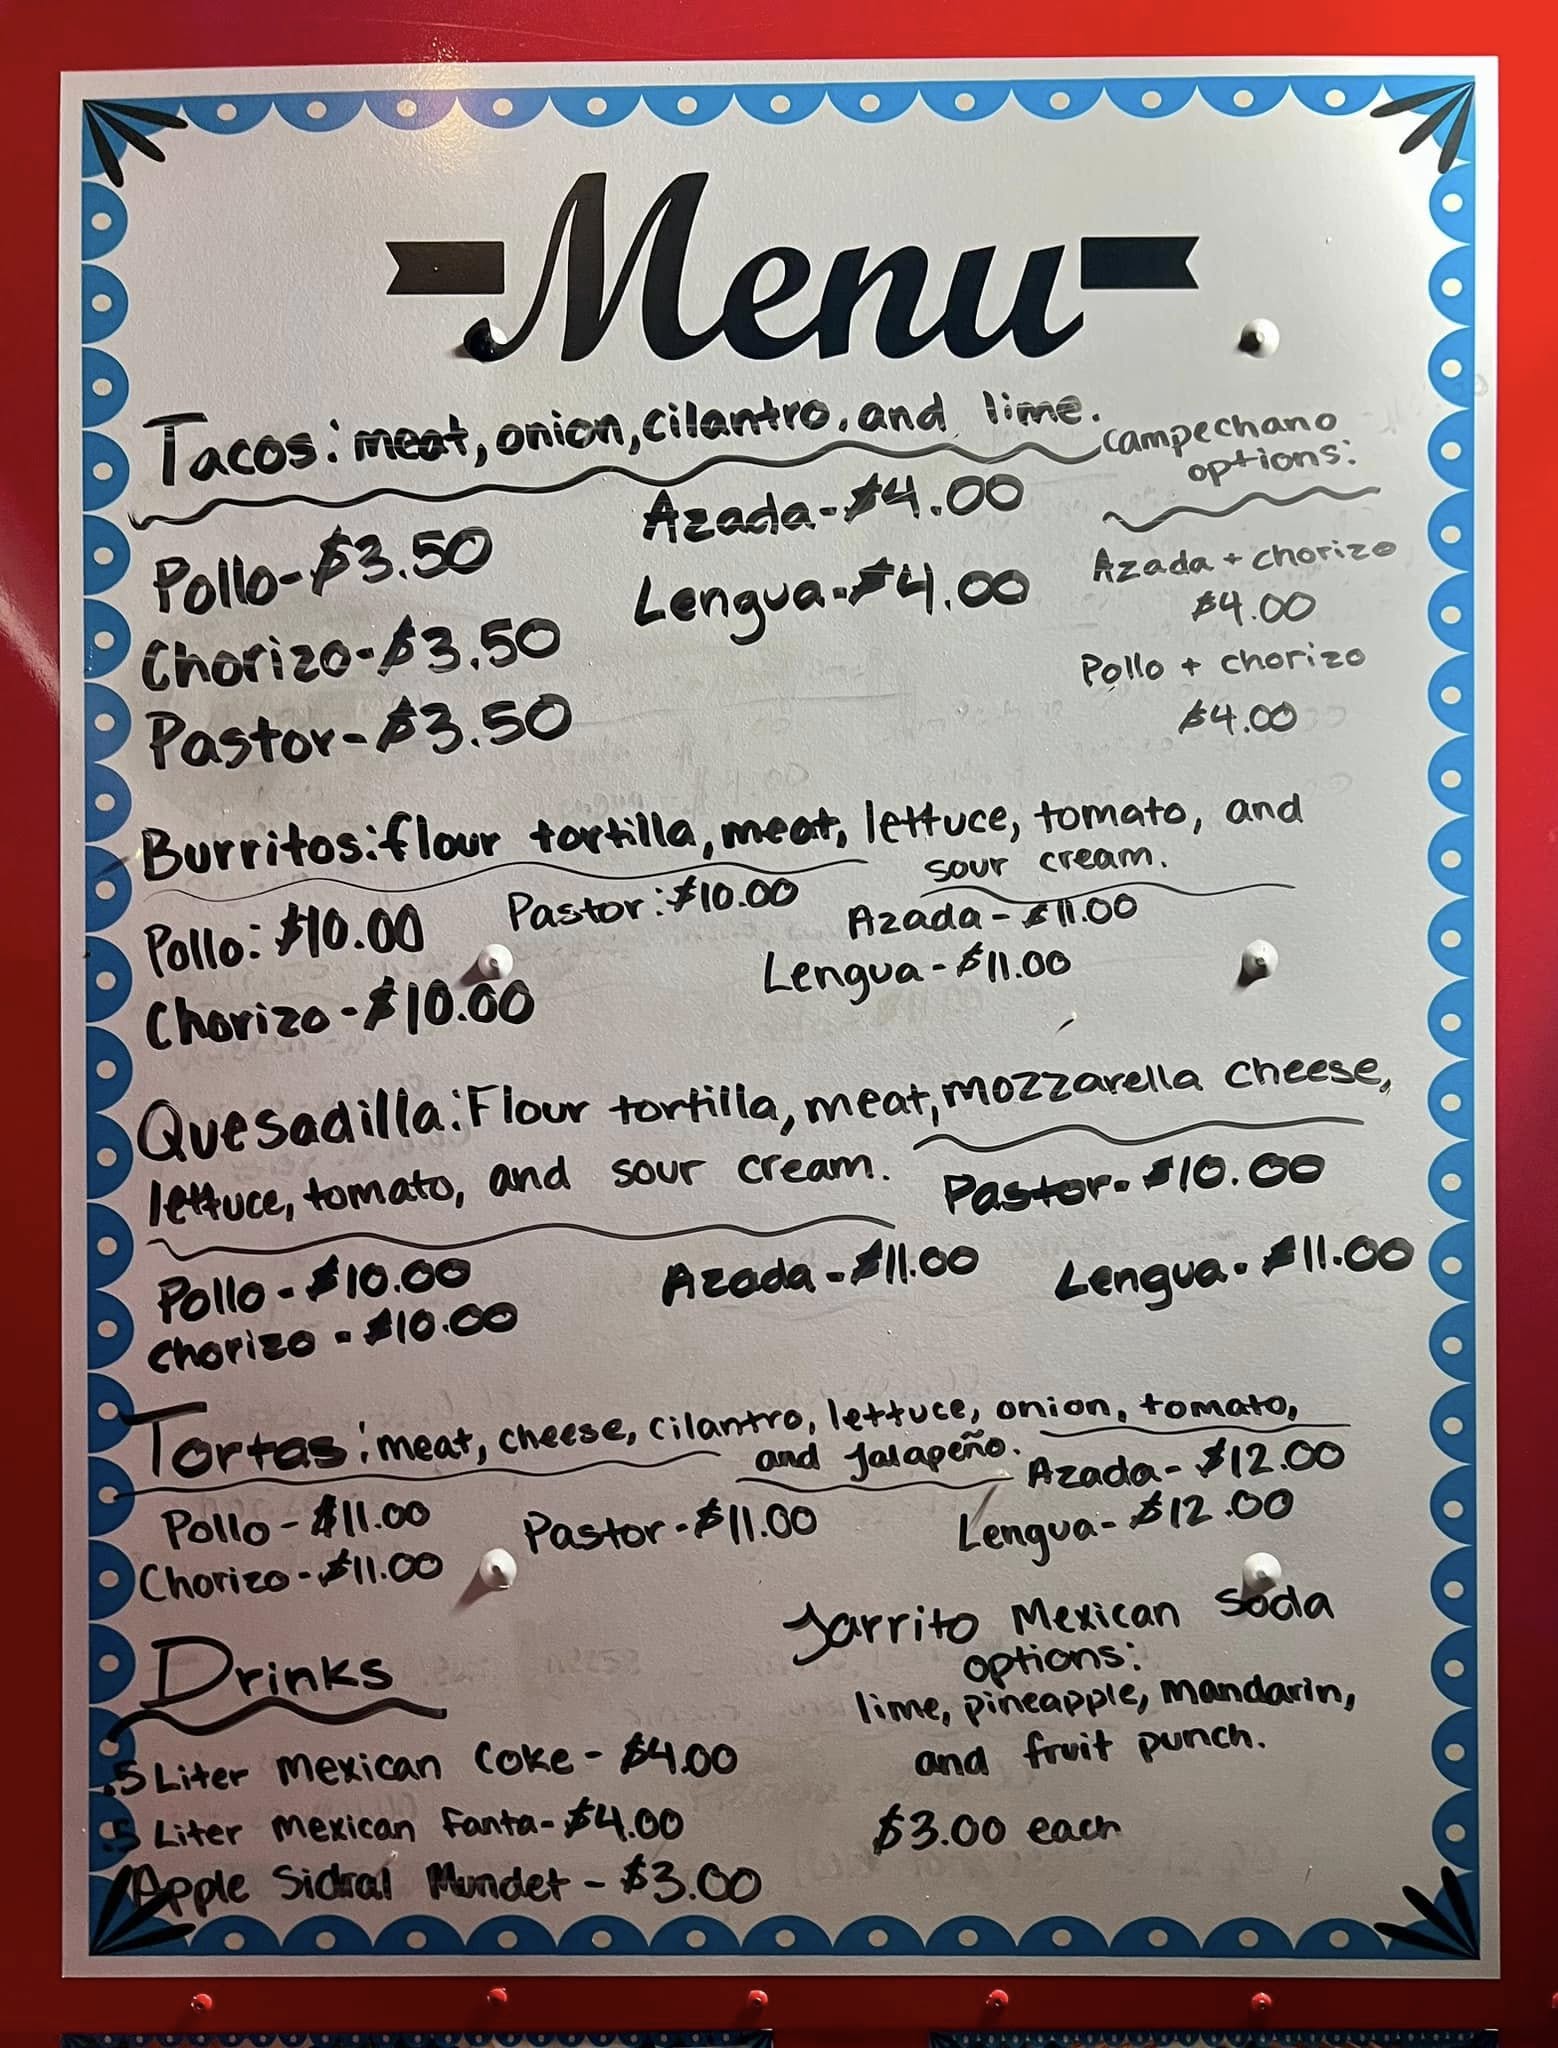 Menu
Tacos: meat, onion, cilantro, and lime.
Pollo-$3.50
Chorizo-$3.50
Pastor-$3.50
Azada-$4.00
Lengua-$4.00
Campechano
options:
Azada + chorizo
$4.00
Pollo + chorizo
$4.00
Burritos: flour tortilla, meat, lettuce, tomato, and
sour cream.
Pollo: $10.00
Chorizo-$10.00
Pastor: $10.00
Azada-$11.00
Lengua-$11.00
Quesadilla: Flour tortilla, meat, mozzarella cheese,
lettuce, tomato, and sour cream.
Pastor-$10.00
Pollo-$10.00
Azada-$11.00
Lengua-$11.00
chorizo-$10.00
Tortas: meat, cheese, cilantro, lettuce, onion, tomato,
and Jalapeño.
Azada-$12.00
Pollo-$11.00
Pastor-$11.00
Lengua-$12.00
Chorizo-$11.00
Drinks
.5 Liter mexican Coke-$4.00
.5 Liter mexican Fanta-$4.00
Apple Sidral Mundet-$3.00
Jarrito Mexican Soda
options:
lime, pineapple, mandarin,
and fruit punch.
$3.00 each